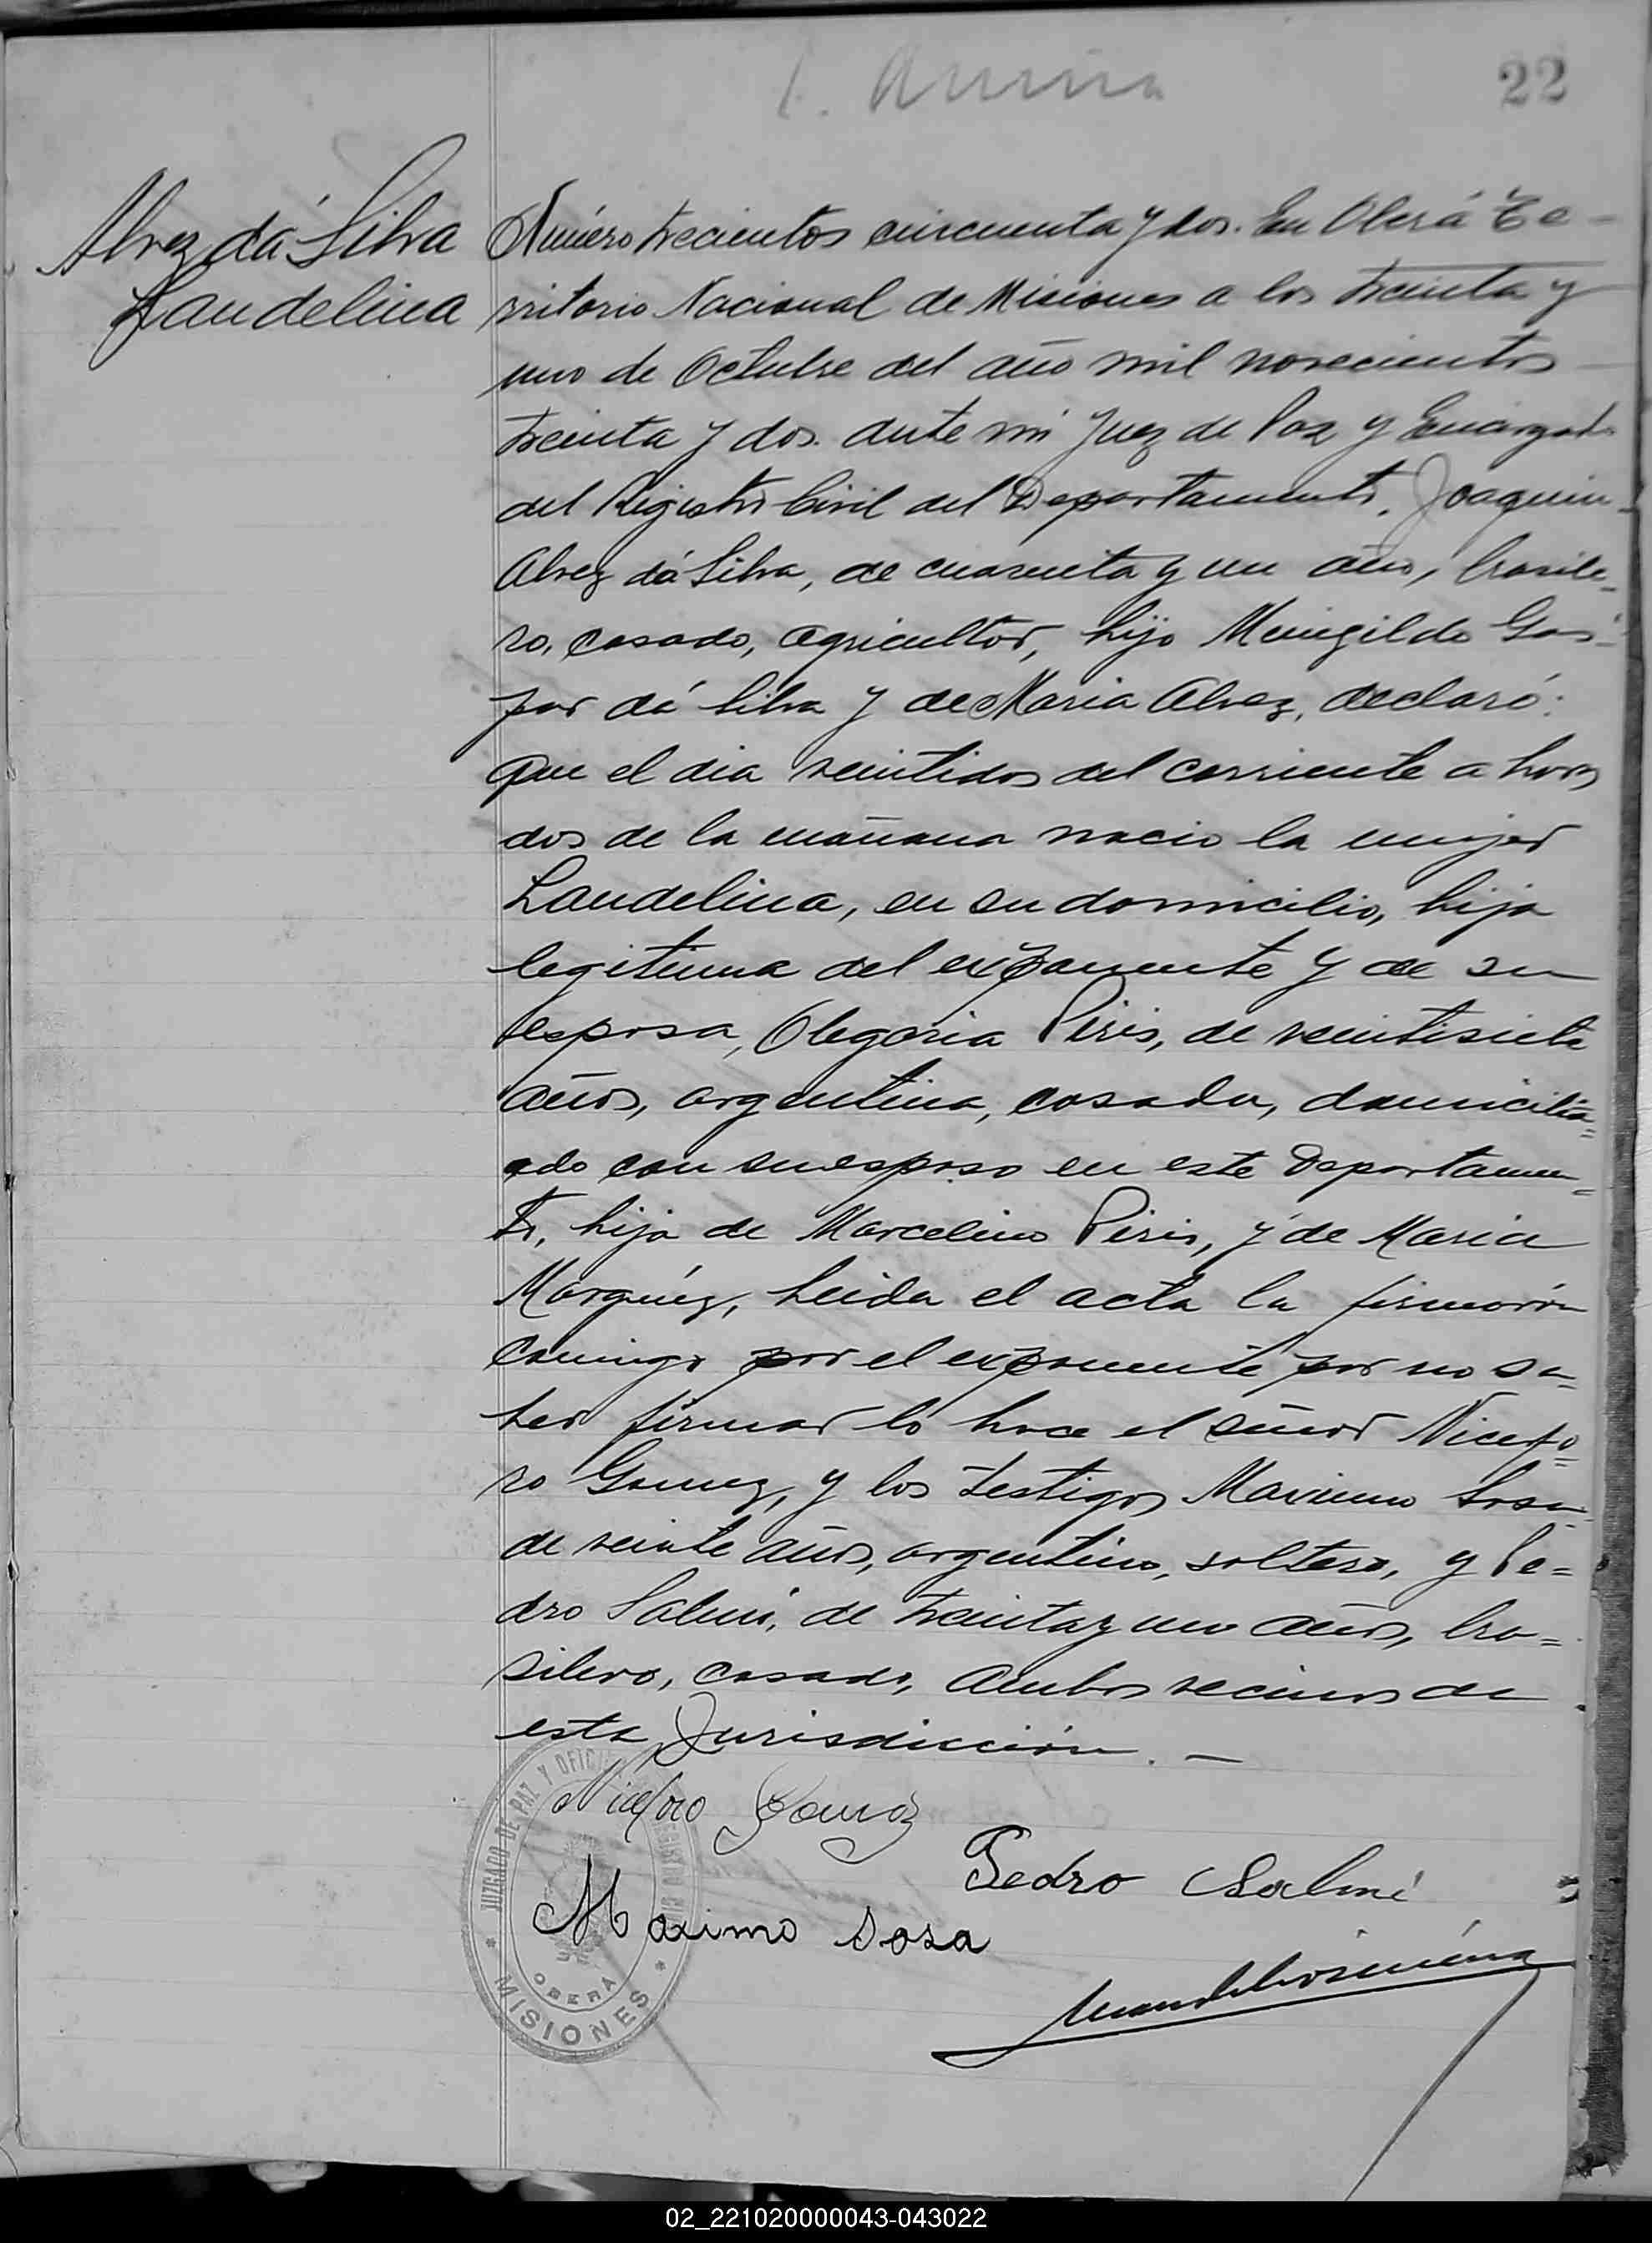 22
Alvez dá Silva
Laudelina
Número trecientos cincuenta y dos. En Oberá Te-
rritorio Nacional de Misiones a los treinta y
uno de Octubre del año mil novecientos
treinta y dos. ante mi Juez de Paz y Encargado
del Registro Civil del Departamento, Joaquin
Alvez dá Silva, de cuarenta y un año, brasile-
ro, casado, agricultor, hijo Meregildo Gas-
par dá Silva y de Maria Alvez, declaró:
que el dia veintidos del corriente a horas
dos de la mañana nacio la mujer
Laudelina, en su domicilio, hija
legitima del exponente y de su
esposa, Olegaria Piris, de veintisiete
años, argentina, casada, domicilia=
ado con su esposo en este Departamen=
to, hija de Marcelino Piris, y de Maria
Marquéz, Leida el acta la firmarón
comingo por el exponente por no sa=
ber firmar lo hace el señor Nicefo=
ro Gomez, y los testigos Maximo Sosa
de veinte años, argentino, soltero, y Pe=
dro Salmi, de treinta y uno años, bra=
silero, casado, ambos vecinos de
esta Jurisdicción. —
Niceforo Gomez
Pedro Salmi
Maximo Sosa
JUZGADO DE PAZ Y OFICINA REGISTRO CIVIL
OBERA
MISIONES
02_221020000043-043022